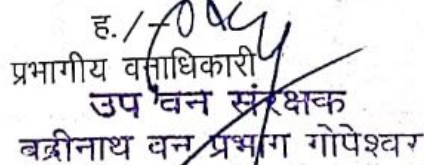 ह. /-
प्रभागीय वनाधिकारी
उप वन संरक्षक
बद्रीनाथ वन प्रभाग गोपेश्वर